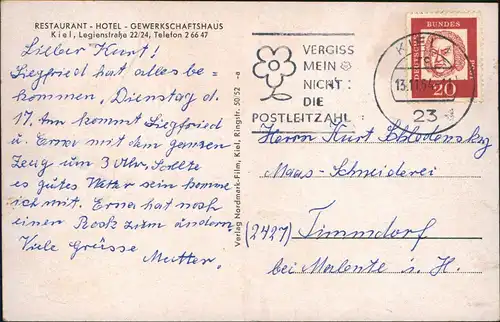 RESTAURANT - HOTEL - GEWERKSCHAFTSHAUS
Kiel, Legienstraße 22/24, Telefon 2 66 47
Lieber Kurt!
Siegfried hat alles be=
kommen, Dienstag d.
17. Am kommt Siegfried
u. Erna mit dem ganzen
Zeug um 3 Uhr, Sollte
es gutes Wetter sein komme
ich mit. Erna hat noch
einen Rock zum ändern
Viele Grüsse
Mutter.
Verlag Nordmark-Film, Kiel, Ringstr. 50/52 -a
VERGISS
MEIN
NICHT:
DIE
POSTLEITZAHL
KIEL
13.11.
23
DEUTSCHE BUNDESPOST
20
Herrn Kurt Schlodensky
Maas-Schneiderei
(2427) Timmdorf
bei Malente i. H.